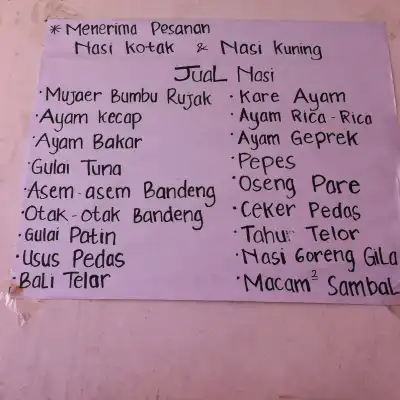 * Menerima Pesanan
Nasi Kotak & Nasi Kuning
Jual Nasi
· Mujaer Bumbu Rujak
· Ayam kecap
· Ayam Bakar
· Gulai Tuna
· Asem-asem Bandeng
· Otak-otak Bandeng
· Gulai Patin
· Usus Pedas
· Bali Telar
· Kare Ayam
· Ayam Rica-Rica
· Ayam Geprek
· Pepes
· Oseng Pare
· Ceker Pedas
· Tahu Telor
· Nasi Goreng Gila
· Macam² Sambal